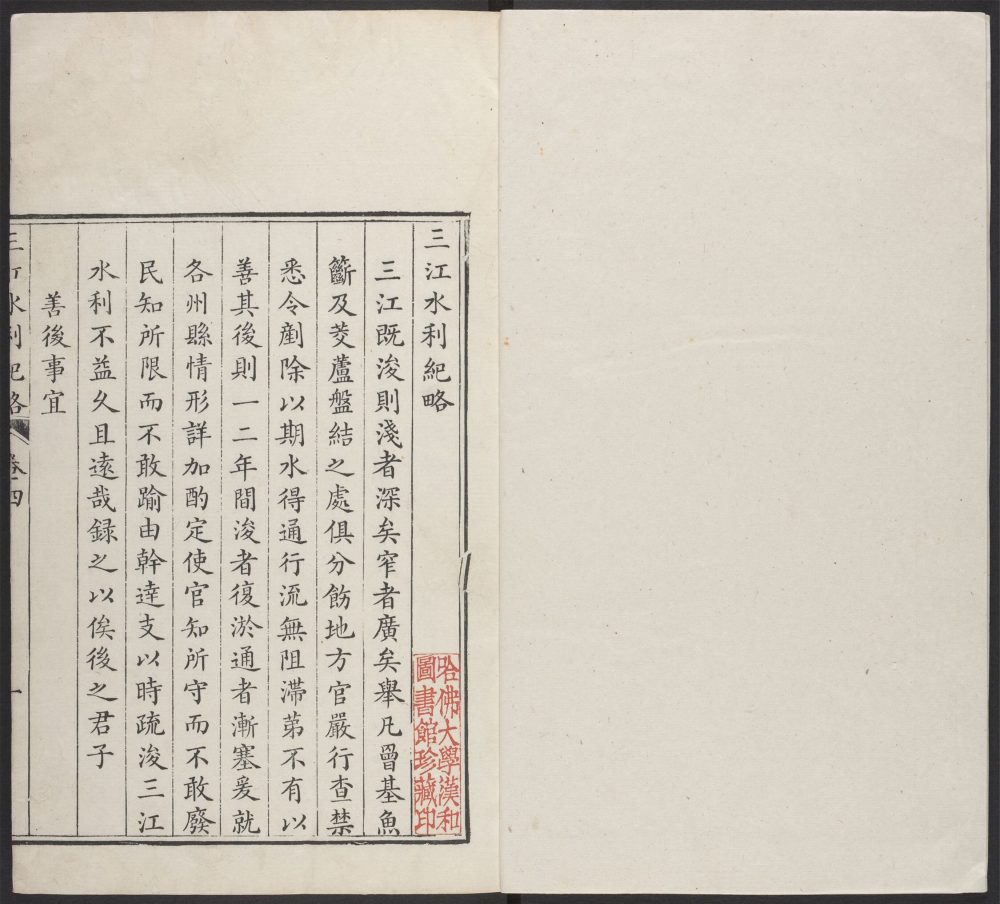 三江水利紀略
三江既浚則淺者深矣窄者廣矣舉凡曾基魚
籪及茭蘆盤結之處俱分飭地方官嚴行查禁
悉令剷除以期水得通行流無阻滯第不有以
善其後則一二年間浚者復淤通者漸塞爰就
各州縣情形詳加酌定使官知所守而不敢廢
民知所限而不敢踰由幹達支以時疏浚三江
水利不益久且遠哉録之以俟後之君子
善後事宜
三江水利紀略 卷四 一
哈佛大學漢和
圖書館珍藏印